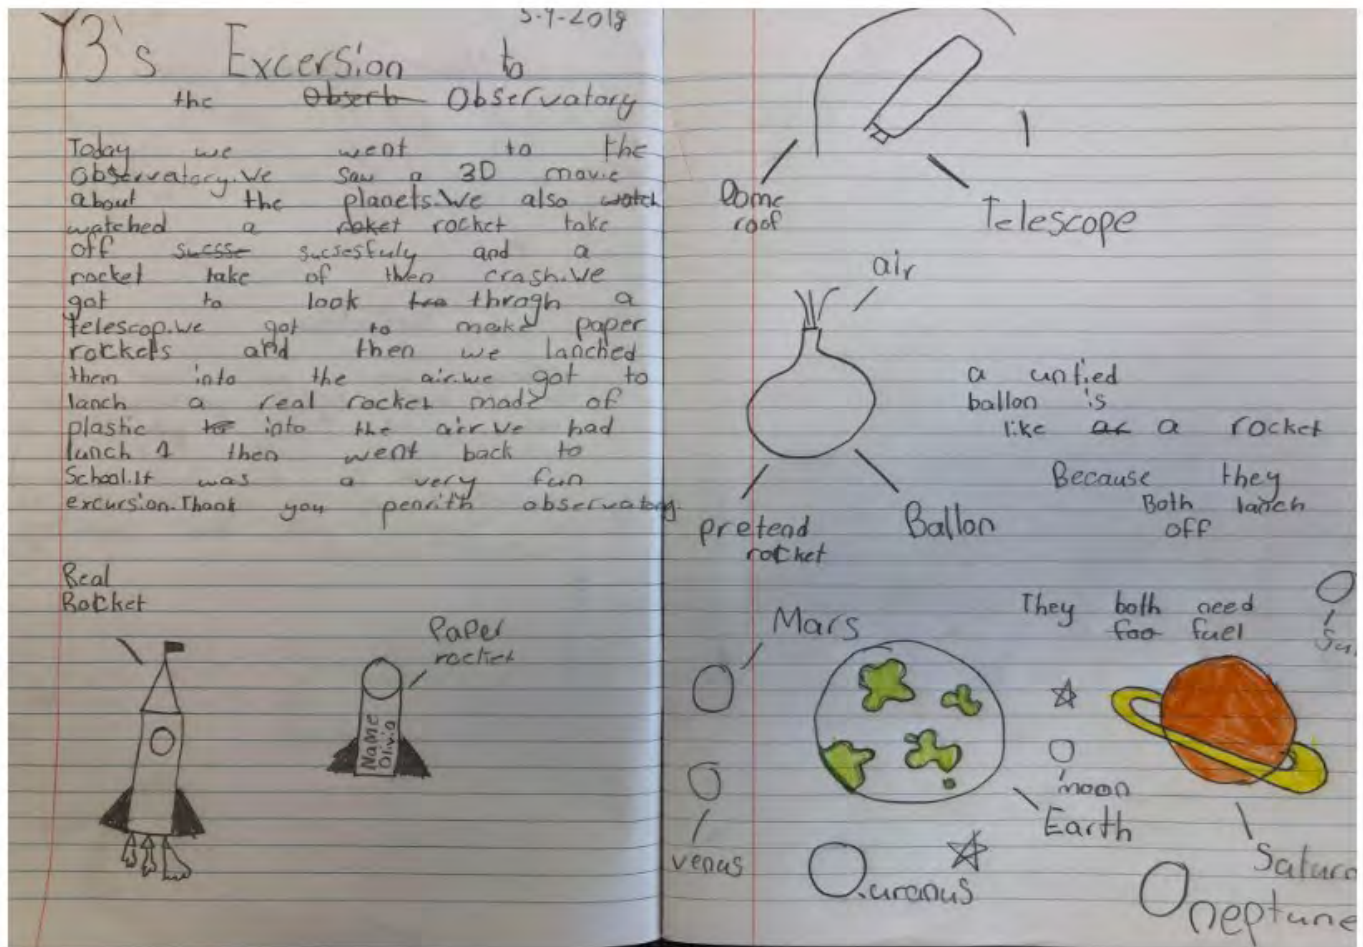 5-9-2018
Y3's Excersion to
the Obserb Observatory
Today we went to the
observatory.We saw a 3D movie
about the planets.We also watch
watched a roket rocket take
off sucsse sucsesfuly and a
rocket take of then crash.We
got to look thro throgh a
telescop.we got to make paper
rockets and then we lanched
them into the air.we got to
lanch a real rocket made of
plastic to into the air.We had
lunch then went back to
School.It was a very fun
excursion.Thank you penrith observatory.
Real
Rocket
Paper
rocket
Name
Olivia
Dome
roof
Telescope
air
a untied
ballon is
like as a rocket
Because they
Both lanch
off
pretend
rocket
Ballon
They both need
foo fuel
Mars
Su
moon
Earth
venus
uranus
Saturn
neptune